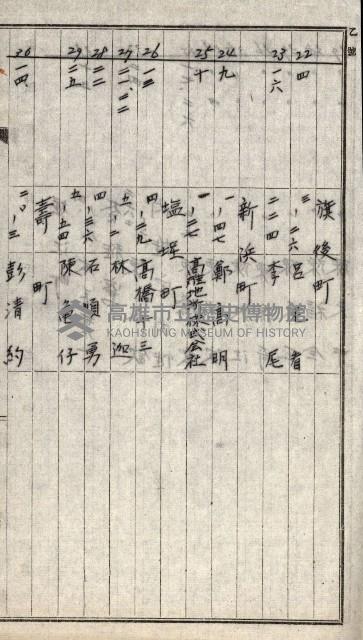 乙號
旗後町
22 四 三-二六 呂 看
23 一六 二-二四 李 尾
新浜町
24 九 一-四七 鄭 高明
25 十 一-二七 高雄地所株式会社
塩埕町
26 一三 四-二九 高橋
27 五-二 林 迦
28 二二 五-三六 石 順勇
29 二五 五-五四 陳 龜仔
壽町
30 一四 二〇-三 彭清約
高雄市立歷史博物館
KAOHSIUNG MUSEUM OF HISTORY